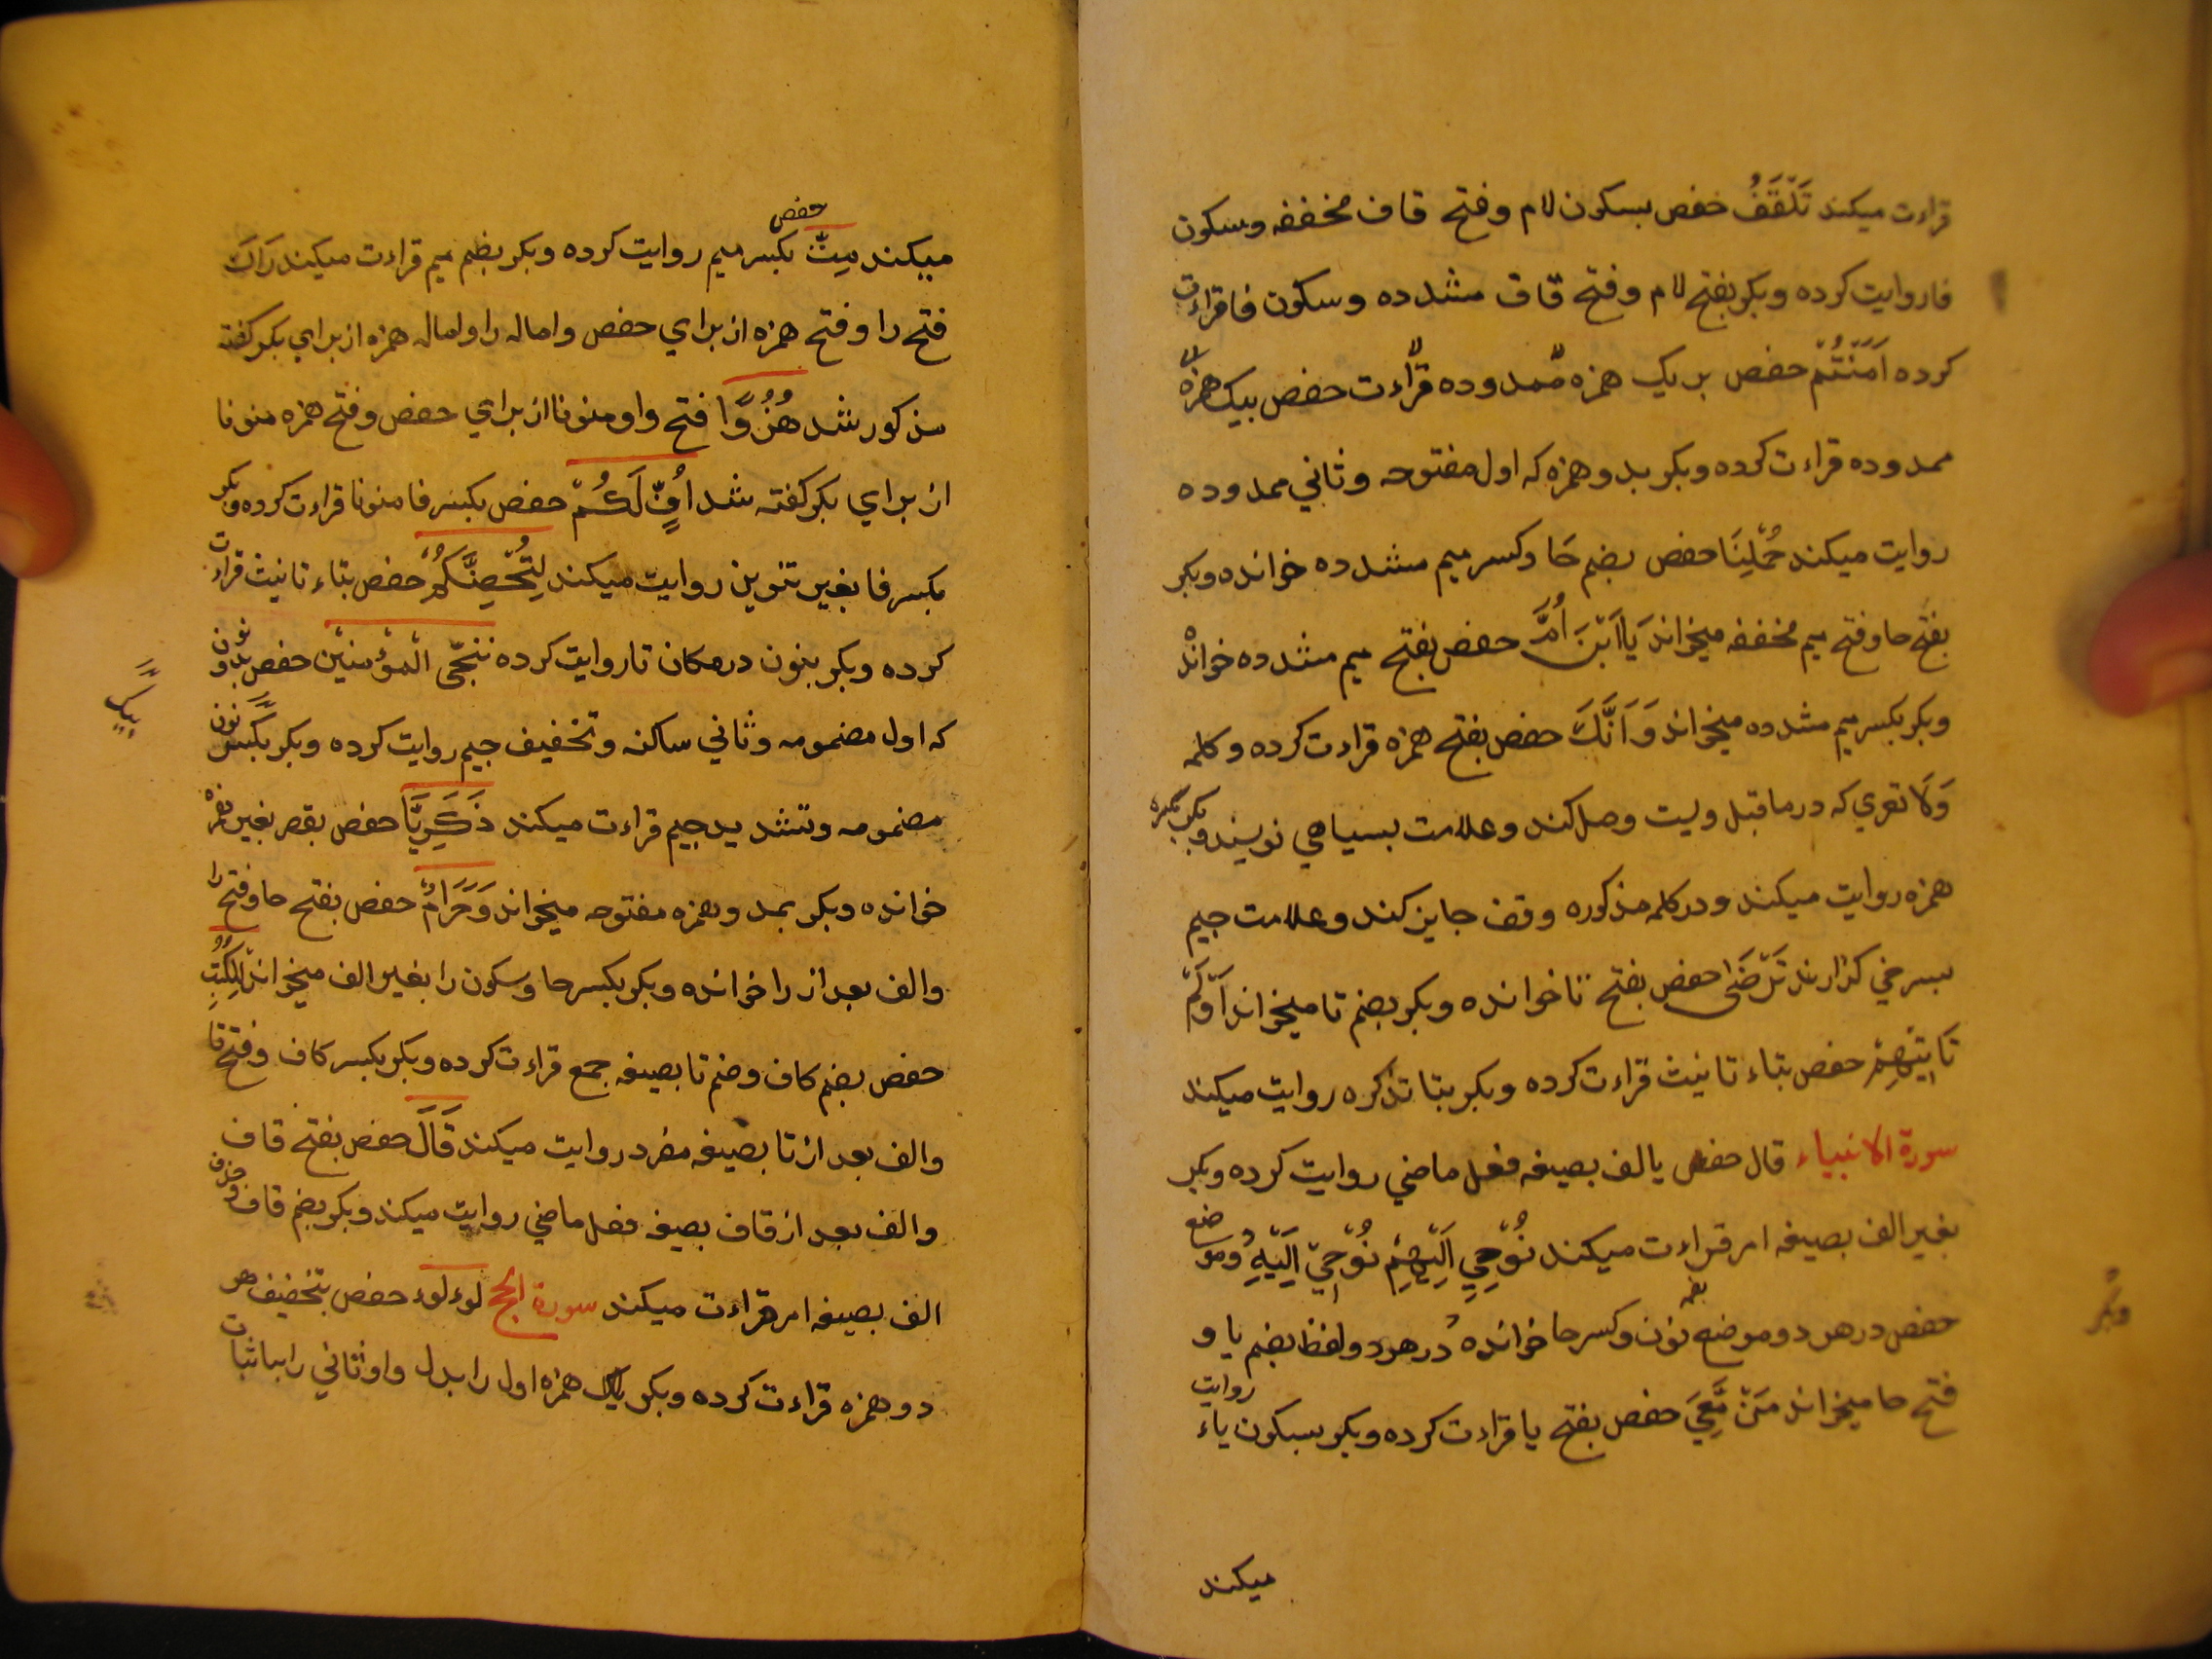 قراءت میکند تَلْقَفُ حفص بسکون لام وفتح قاف مخففه وسکون
فا روایت کرده وبکر بفتح لام وفتح قاف مشدده وسکون فا قراءت
کرده اٰمَنْتُمْ حفص بریک همزه ممدوده قراءت حفص بیک همزه
ممدوده قراءت کرده وبکر بدو همزه که اول مفتوحه وثاني ممدوده
روایت میکند حُمِّلْنَا حفص بضم حَا وکسر میم مشدده خوانده وبکر
بفتح حا وفتح میم مخففه میخواند یَا ابْنَ اُمَّ حفص بفتح میم مشدده خوانده
وبکر بکسر میم مشدده میخواند وَاَنَّكَ حفص بفتح همزه قراءت کرده وکلمه
وَلَا تعري که در ماقبل ویست وصل کند وعلامت بسیاهي نویسند وبکر بکسره
همزه روایت میکند ودر کلمه مذکوره وقف جایز کند وعلامت جیم
بسرخي کذارند تَرْضٰی حفص بفتح تا خوانده وبکر بضم تا میخواند اَوَلَمْ
تَاْتِیْهِمْ حفص بتاء تانیث قراءت کرده وبکر بتا تذکره روایت میکند
سورة الانبیاء قال حفص یا الف بصیغه فعل ماضي روایت کرده وبکر
بغیر الف بصیغه امر قراءت میکند نُوْحِي اِلَیْهِمْ نُوْحِيْ اِلَیْهِ وموضع
حفص در هر دو موضع نون وکسر حا خوانده در هر دو لفظ بضم یا و
فتح حا میخواند مَنْ مَّعِيَ حفص بفتح یا قراءت کرده وبکر بسکون یاء روایت
میکند
وبکر
حفص
میکند مِتَّ بکسر میم روایت کرده وبکر بضم میم قراءت میکند رَاكَ
فتح را وفتح همزه از براي حفص واماله را واماله همزه از براي بکر کفته
مذکور شد هُزُوًا فتح واو منونا از براي حفص وفتح همزه منونا
از براي بکر کفته شد اُفٍّ لَکُمْ حفص بکسر فا منونا قراءت کرده وبکر
بکسر فا بغیر تنوین روایت میکند لِتُحْصِنَکُمْ حفص بتاء تانیث قراءت
کرده وبکر بنون در مکان تا روایت کرده نُنْجِي الْمُؤْمِنِیْنَ حفص بدو نون
که اول مضمومه وثاني ساکنه وتخفیف جیم روایت کرده وبکر بکسر نون
بیک
مضمومه وتشدید جیم قراءت میکند زَکَرِیَّا حفص بقصر بغیر همزه
خوانده وبکر بمد وهمزه مفتوحه میخواند وَحَرَامٌ حفص بفتح حا وفتح را
والف بعد از را خوانده وبکر بکسر حا وسکون را بغیر الف میخواند لِلْکُتُبِ
حفص بضم کاف وضم تا بصیغه جمع قراءت کرده وبکر بکسر کاف وفتح تا
والف بعد از تا بصیغه مفرد روایت میکند قَالَ حفص بفتح قاف
والف بعد از قاف بصیغه فعل ماضي روایت میکند وبکر بضم قاف وحذف
الف بصیغه امر قراءت میکند سورة الحج لوءلوء حفص بتخفیف هر
دو همزه قراءت کرده وبکر یك همزه اول را بدل واو ثاني را باثبات